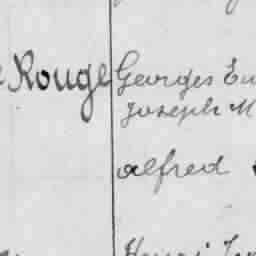 Rouge Georges Eu
Joseph M
alfred
Henri Jo